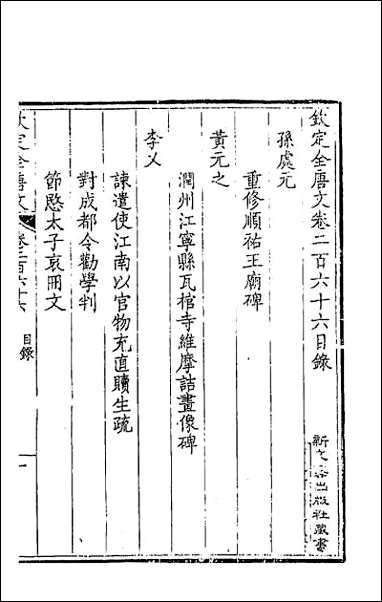 欽定全唐文卷二百六十六目錄
孫處元
重修順祐王廟碑
黃元之
潤州江寧縣瓦棺寺維摩詰畫像碑
李乂
諫遣使江南以官物充直贖生疏
對成都令勸學判
節愍太子哀冊文
欽定全唐文
卷二百六十六
目錄
一